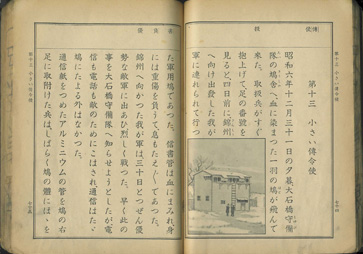 第十三　小さい傳令使
昭和六年十二月三十一日の夕暮、大石橋守備
隊の鳩舎へ、血に染まつた一羽の鳩が飛んで
來た。取扱兵がすぐ
抱上げて、足の番號を
見ると、四日前に錦州
へ向け出發した我が
軍に連れられて行つ
た軍用鳩であつた。信書管は血にまみれ、身
には重傷を負うて、息もたえ／″＼であつた。
錦州へ向かつた我が軍は、三十日とつぜん優
勢な敵軍に出あひ、烈しく戰つた。早く此の
事を大石橋守備隊へ知らせようとしたが、電
信も電話も敵のためにこはされ、通信はたゞ
鳩による外はなかつた。
通信紙をつめたアルミニウムの管を、鳩の右
足に取附けた兵は、しばらく鳩の顔にほゝを